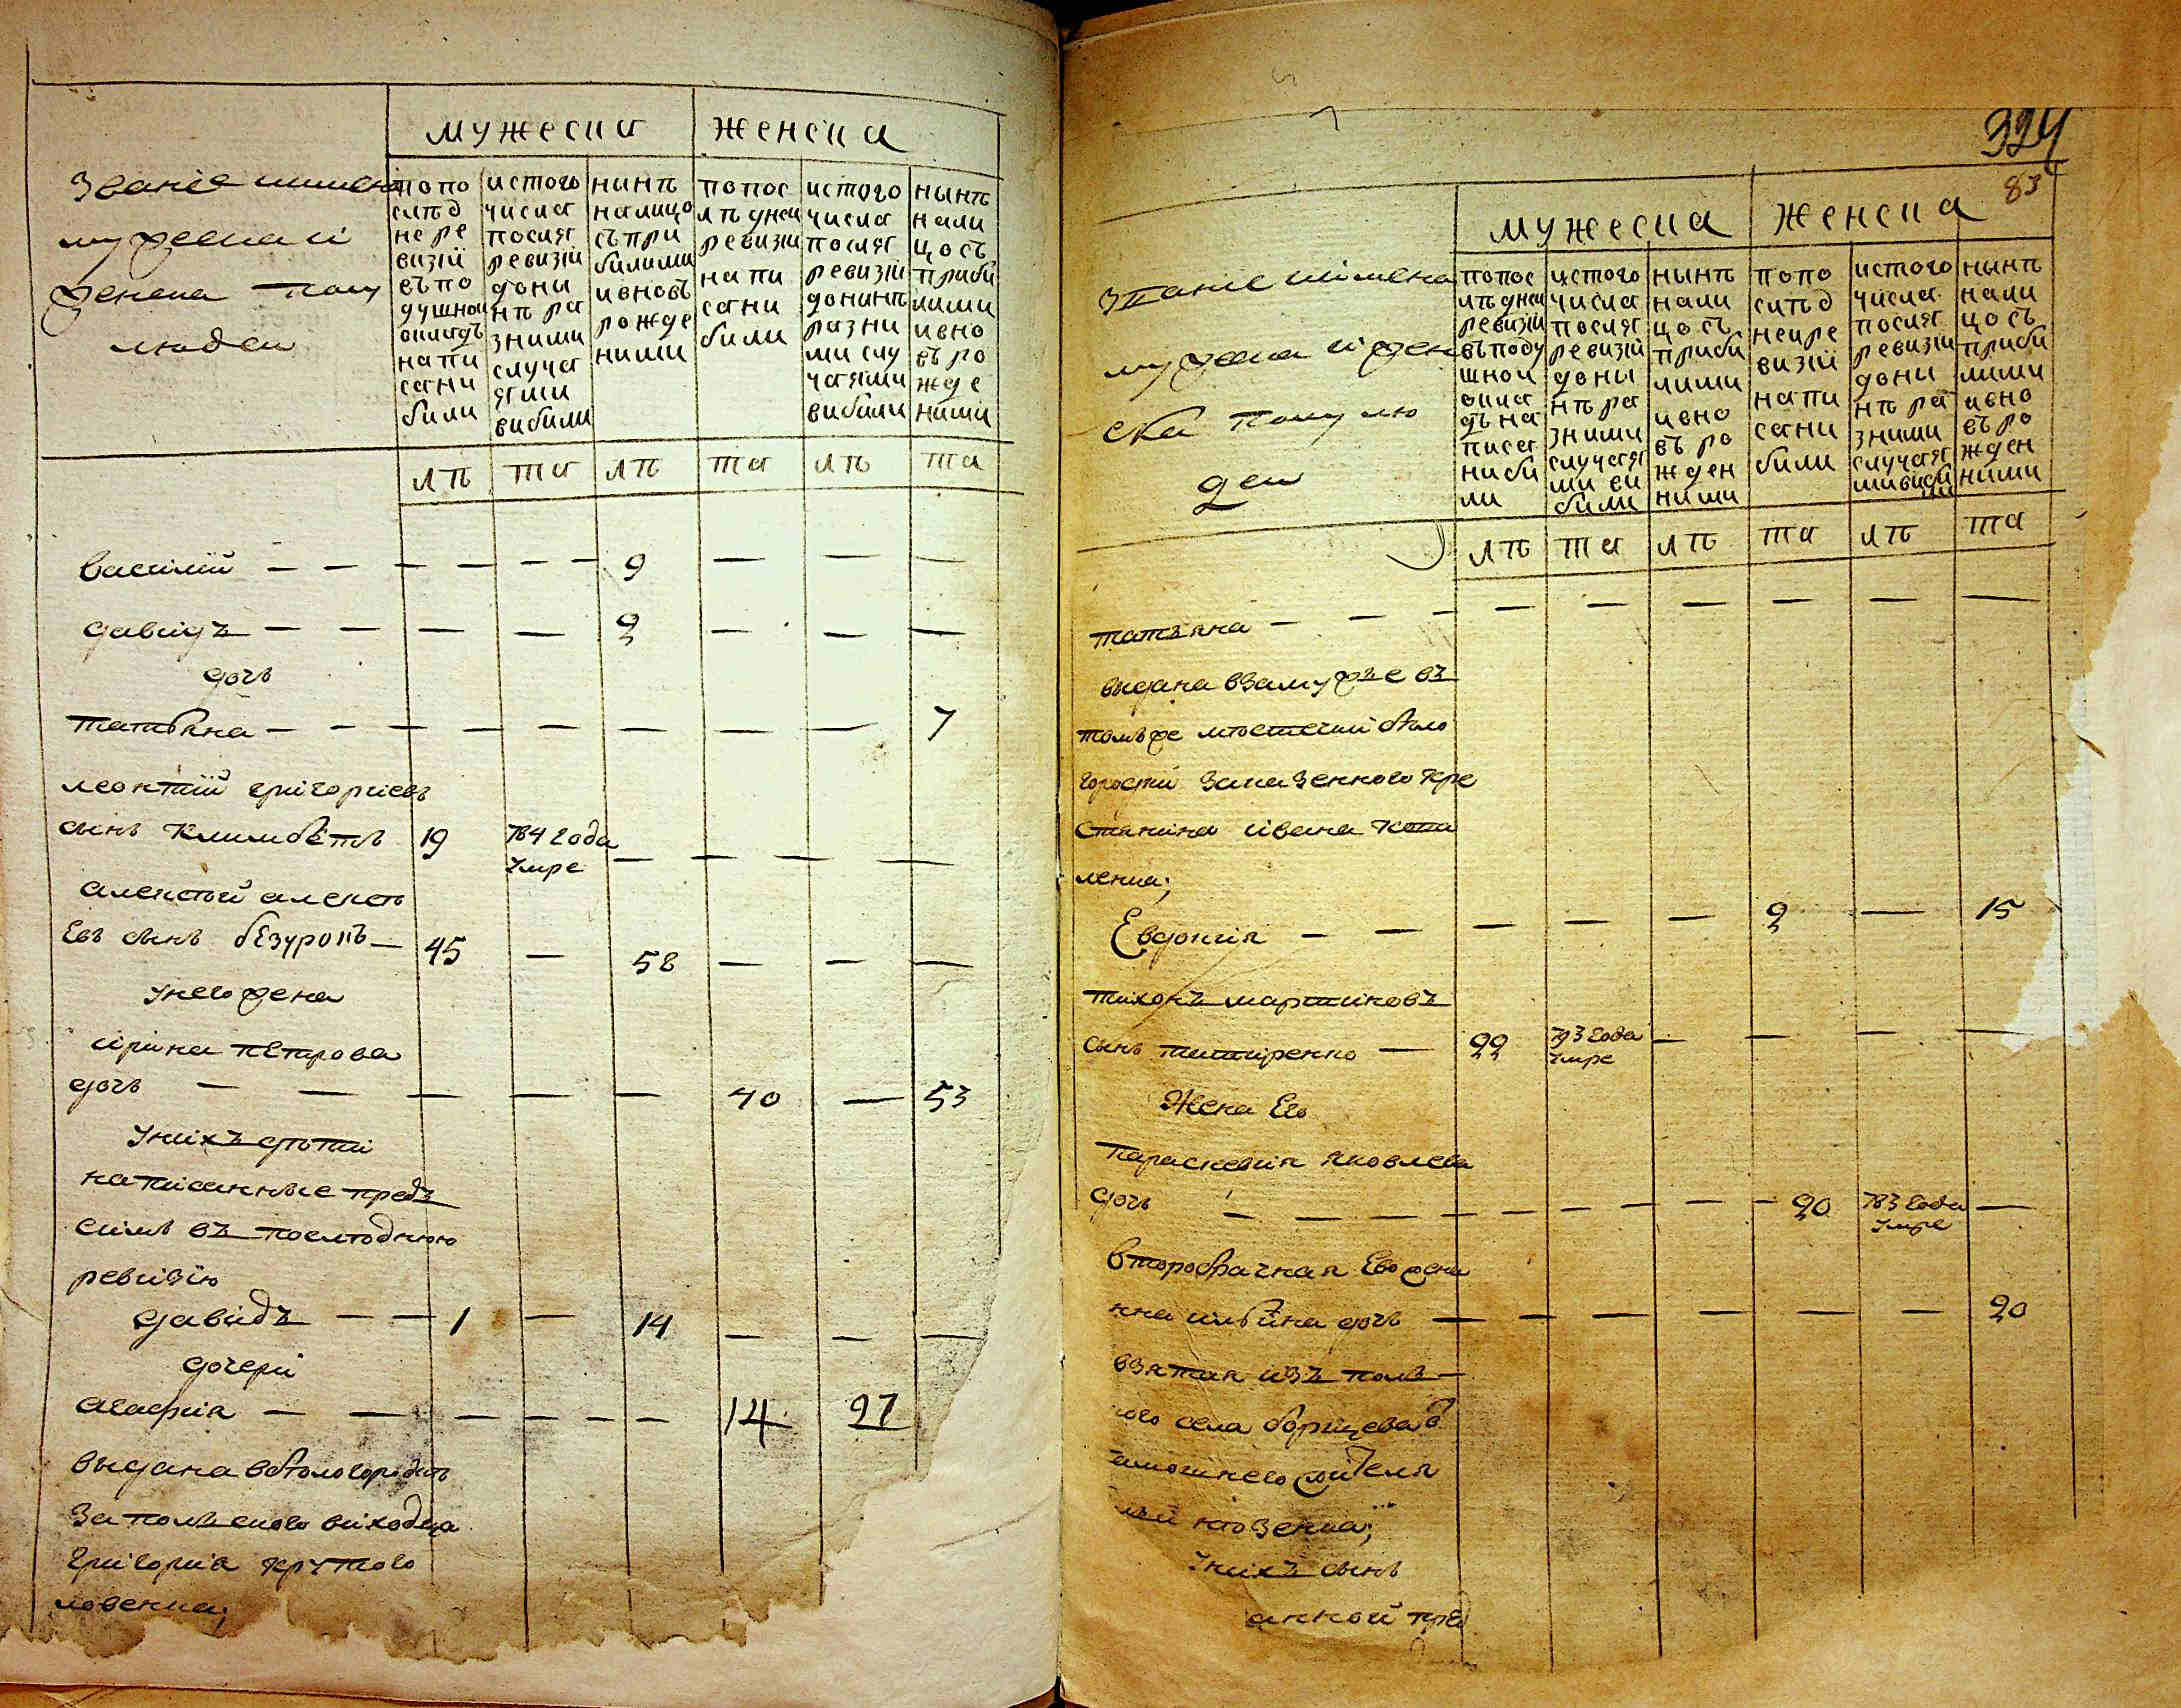 мужеска женска
Званіе иимена
мужеска и
женска полу
людеи
попо
слѣд
не ре
визіи
въ по
душном
окладѣ
напи
сани
били
истого
числа
послѣ
ревизіи
дони
нѣ ра
зними
случа
ями
вибили
нынѣ
налицо
съ при
билими
ивновь
рожде
ними
попос
лѣдней
ревизіи
напи
сани
били
истого
числа
послѣ
ревизіи
донинѣ
разни
ми слу
чаями
вибили
нынѣ
нали
цо съ
приби
лими
ивно
въ ро
жде
ними
лѣ та лѣ та лѣ та
василий — — — — — 9 — — —
давидъ — — — — 2 — — —
дочь
татьяна — — — — — — — — 7
леонтий григориевъ
сынъ климовѣтъ 19 784 года — — — —
умре
алексѣй алексѣ
евъ сынъ безурокъ — 45 — 58 — — —
унего жена
ирина петрова
дочь — — — — — 40 — 53
унихъ дѣти
написанные предъ
симъ въ послѣднюю
ревизию
давидъ — — 1 — 14 — — —
дочери
агафия — — — — — 14 27
выдана вбѣлогородкѣ
за полского виходца
григория круто
ловенка;
324
83
мужеска женска
Званіе иимена
мужеска и жен
ска полу лю
деи
попос
лѣдней
ревизіи
въ поду
шном
окла
дѣ на
писа
ни би
ли
истого
числа
послѣ
ревизіи
дони
нѣ ра
зними
случая
ми ви
били
нынѣ
нали
цо съ
приби
лими
ивно
въ ро
жден
ними
попо
слѣд
ней ре
визіи
напи
сани
били
истого
числа
послѣ
ревизіи
дони
нѣ ра
зними
случая
ми виби
ли
нынѣ
нали
цо съ
приби
лими
ивно
въ ро
жден
ними
лѣ та лѣ та лѣ та
татьяна — — — — — — — — —
выдана взамужъе въ
томъже мѣстечки бѣло
городки заказенного кре
стянина ивана кова
ленка;
Евдокия — — — — — 2 — 15
тихонъ мартиновъ
сынъ титаренко — 22 793 года — — — —
умре
Жена Его
параскевия яковлева
дочь — — — — — — — 20 783 года —
умре
второбрачная Его жена
нна ильина дочь — — — — — — 20
взятая изъ пол —
ого села борщева
жителя
унихъ сынъ
анной пред